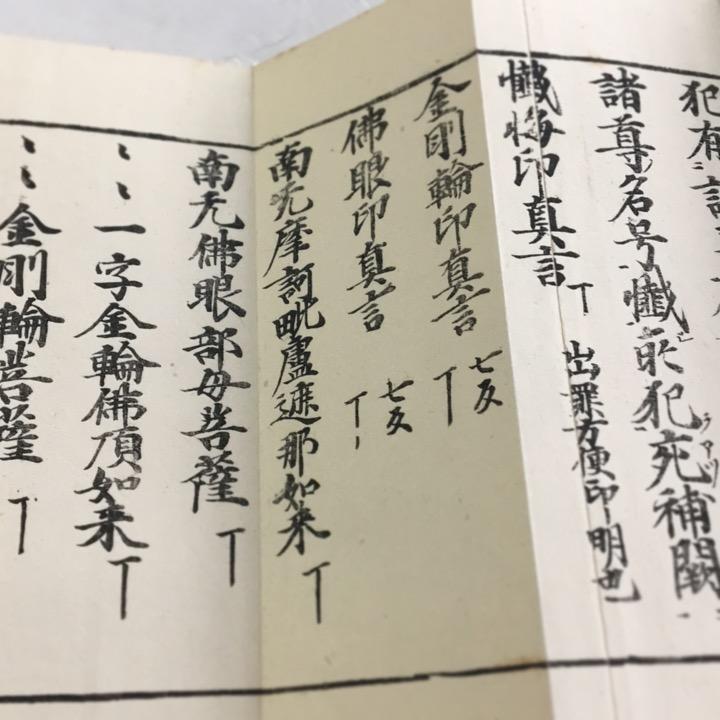 犯有
諸尊名号懺所犯充補闕
懺悔印真言丁 出罪方便印明也
金剛輪印真言 七反 丁
佛眼印真言 七反 丁
南无摩訶毗盧遮那如来丁
南无佛眼部母菩薩丁
〻〻一字金輪佛頂如来丁
〻〻金剛輪菩薩丁